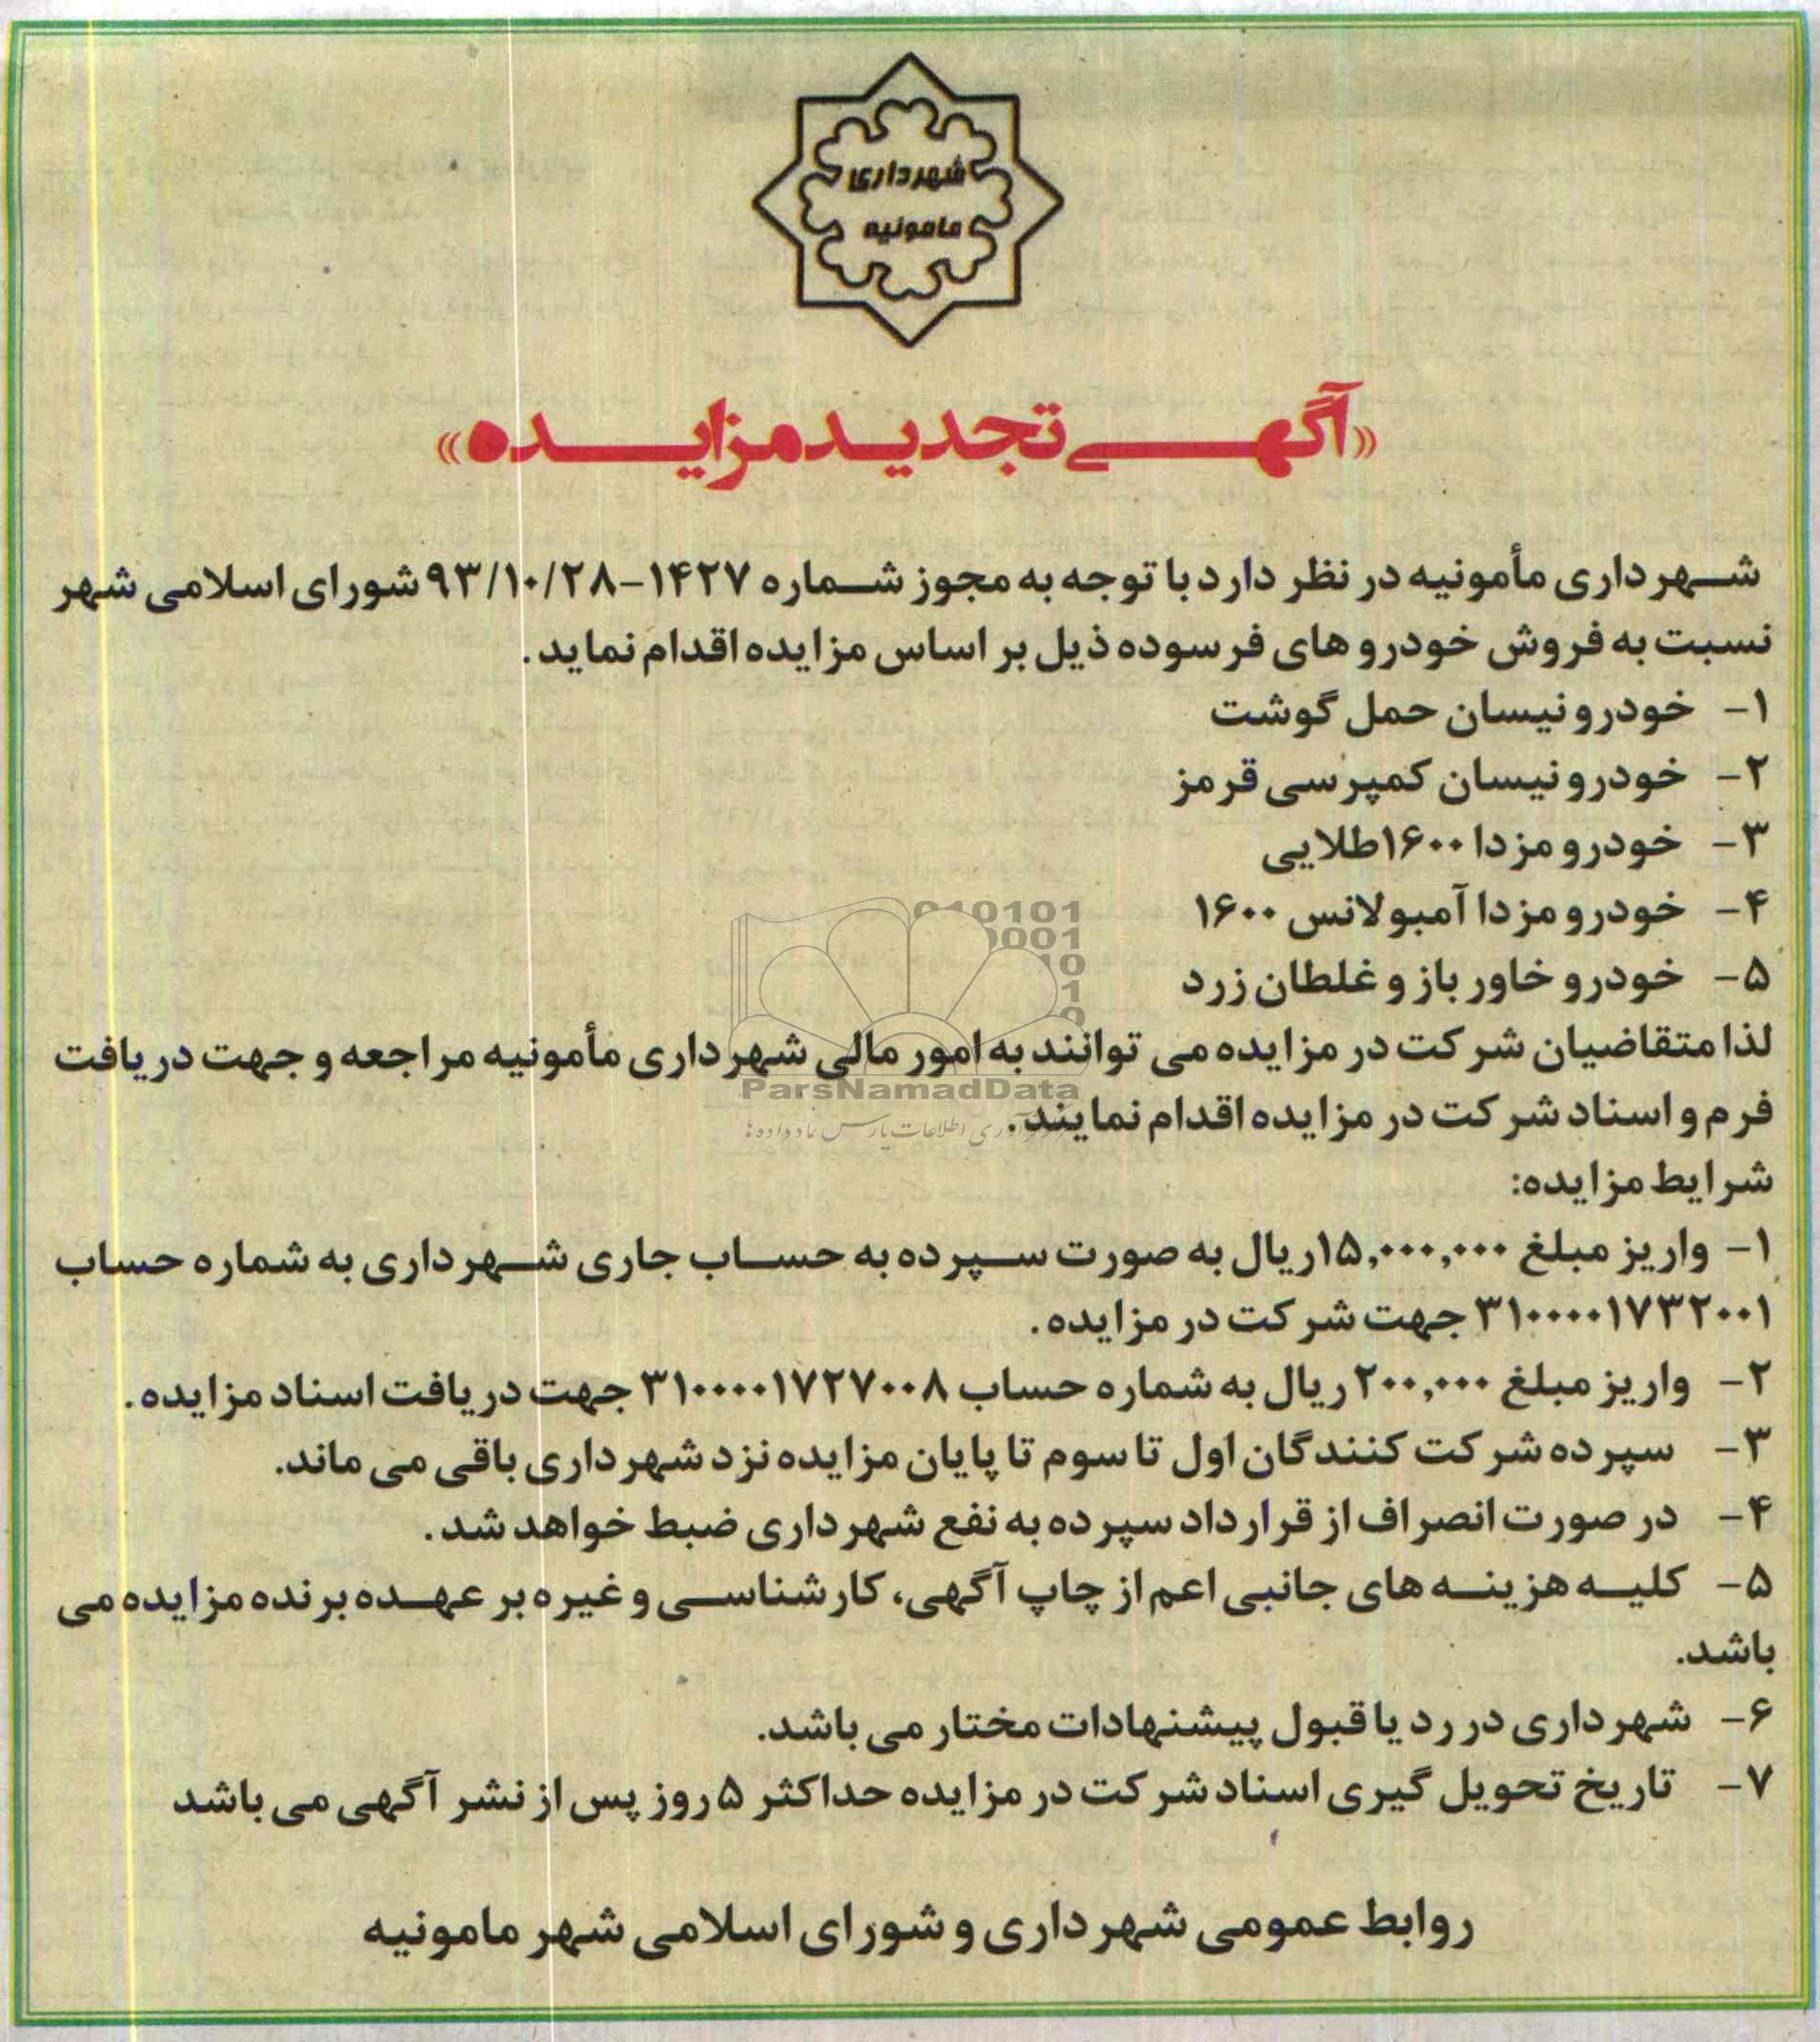 شهرداری
مامونیه
«آگهی تجدید مزایده»
شهرداری مأمونیه در نظر دارد با توجه به مجوز شماره ۱۴۲۷-۹۳/۱۰/۲۸ شورای اسلامی شهر
نسبت به فروش خودروهای فرسوده ذیل بر اساس مزایده اقدام نماید.
۱- خودرو نیسان حمل گوشت
۲- خودرو نیسان کمپرسی قرمز
۳- خودرو مزدا ۱۶۰۰ طلایی
۴- خودرو مزدا آمبولانس ۱۶۰۰
۵- خودرو خاور باز و غلطان زرد
لذا متقاضیان شرکت در مزایده می توانند به امور مالی شهرداری مأمونیه مراجعه و جهت دریافت
ParsNamadData
فرم و اسناد شرکت در مزایده اقدام نمایند.
شرایط مزایده:
۱- واریز مبلغ ۱۵,۰۰۰,۰۰۰ ریال به صورت سپرده به حساب جاری شهرداری به شماره حساب
۳۱۰۰۰۰۱۷۳۲۰۰۱ جهت شرکت در مزایده.
۲- واریز مبلغ ۲۰۰,۰۰۰ ریال به شماره حساب ۳۱۰۰۰۰۱۷۲۷۰۰۸ جهت دریافت اسناد مزایده.
۳- سپرده شرکت کنندگان اول تا سوم تا پایان مزایده نزد شهرداری باقی می ماند.
۴- در صورت انصراف از قرارداد سپرده به نفع شهرداری ضبط خواهد شد.
۵- کلیه هزینه های جانبی اعم از چاپ آگهی، کارشناسی و غیره بر عهده برنده مزایده می
باشد.
۶- شهرداری در رد یا قبول پیشنهادات مختار می باشد.
۷- تاریخ تحویل گیری اسناد شرکت در مزایده حداکثر ۵ روز پس از نشر آگهی می باشد
روابط عمومی شهرداری و شورای اسلامی شهر مامونیه